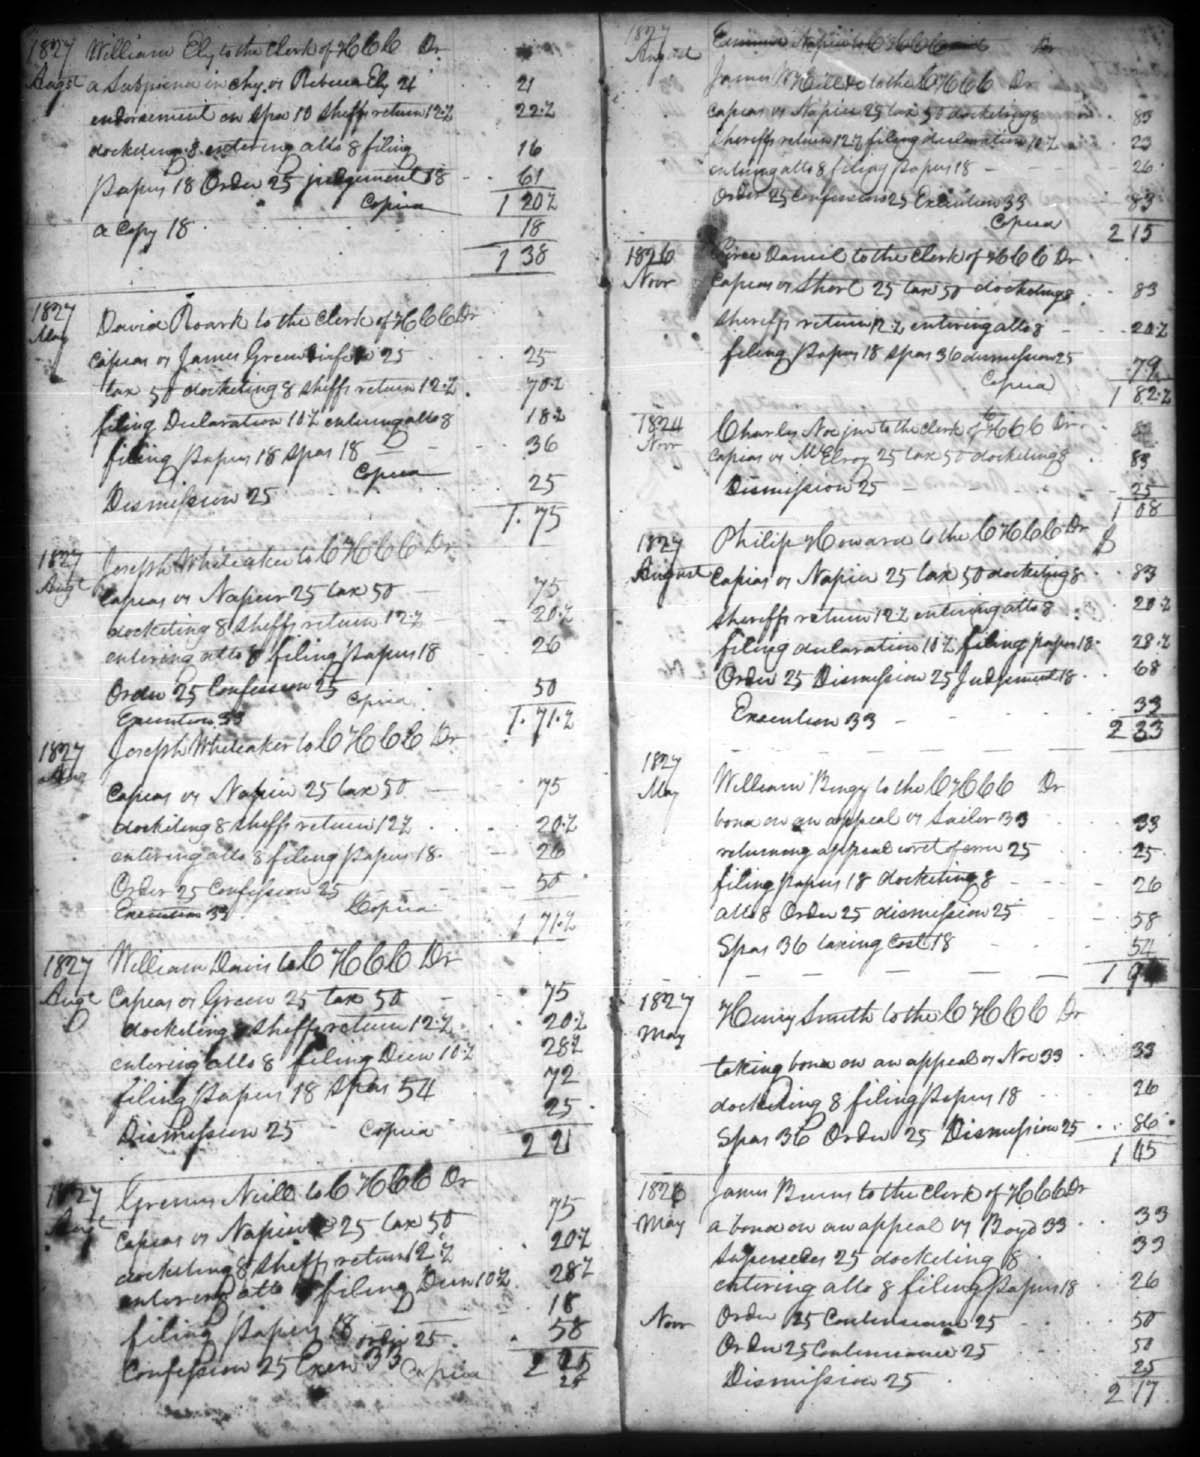 1827 William Ely to the Clerk of HCC Dr
Augst a Subpoena in chy. vs Rebecca Ely 21 21
endorsement on spa 10 Sheffs return 12½ 22½
docketing 8 entering atto 8 filing 16
papers 18 Order 25 judgement 18 61
Copied 1 20½
a Copy 18 18
1 38
1827 David Roark to the Clerk of HCC Dr
May
capias vs James Green 25 25
tax 50 docketing 8 Sheffs return 12½ 70½
filing Declaration 10½ entering atto 8 18½
filing papers 18 spas 18 36
Copied
Dismission 25 25
1.75
1827 Joseph Whiteaker to CHCC Dr
Augt Capias vs Napier 25 tax 50 75
docketing 8 Sheffs return 12½ 20½
entering atto 8 filing papers 18 26
Order 25 Confession 25 50
Execution 33 Copied 1.71½
1827 Joseph Whiteaker to CHCC Dr
Aug
Capias vs Napier 25 tax 50 75
docketing 8 Sheffs return 12½ 20½
entering atto 8 filing papers 18 26
Order 25 Confession 25 50
Execution 33 Copied
1 71½
1827 William Davis to CHCC Dr
Augt Capias vs Green 25 tax 50 75
docketing 8 Sheffs return 12½ 20½
entering atto 8 filing Decn 10½ 28½
filing papers 18 Spas 54 72
Dismission 25 Copied 25
2 21
1827 Neill to CHCC Dr
Augt Capias vs Napier 25 tax 50 75
docketing 8 Sheffs return 12½ 20½
entering atto filing Decn 10½ 28½
filing papers 18 order 25 18
Confession 25 Exen 33 Copied 58
2 25
25
1827 Napier to CHCC Dr
August James W to the CHCC Dr
capias vs Napier 25 tax 50 docketing 8 83
Sheriffs return 12½ filing declaration 10½ 23
entering atto 8 filing papers 18 26
Order 25 confession 25 Execution 33 83
Copied 2 15
1826 Daniel to the Clerk of HCC Dr
Novr Capias vs Short 25 tax 50 docketing 8 83
Sheriffs return 12½ entering atto 8 20½
filing papers 18 spas 36 dismission 25 79
Copied 1 82½
1824 Charles Noe jnr to the Clerk of HCC Dr
Novr capias vs McElroy 25 tax 50 docketing 8 83
Dismission 25 25
1 08
1827 Philip Howard to the CHCC Dr
August Capias vs Napier 25 tax 50 docketing 8 83
Sheriffs return 12½ entering atto 8 20½
filing declaration 10½ filing papers 18 28½
Order 25 Dismission 25 Judgement 18 68
Execution 33 33
2 33
1827
May William Bingy to the CHCC Dr
bond on an appeal vs Sailor 33 33
returning appeal writ of error 25 25
filing papers 18 docketing 8 26
atto 8 Order 25 dismission 25 58
Spas 36 taxing Cost 18 54
1 9
1827 Henry Smith to the CHCC Dr
May
taking bond on an appeal vs Noe 33 33
docketing 8 filing papers 18 26
Spas 36 Order 25 Dismission 25 86
1 45
1826 James Burns to the Clerk of HCC Dr
May a bond on an appeal vs Boyd 33 33
supersedes 25 docketing 8 33
entering atto 8 filing papers 18 26
Novr Order 25 Continuance 25 50
Order 25 Continuance 25 50
Dismission 25 25
2 17